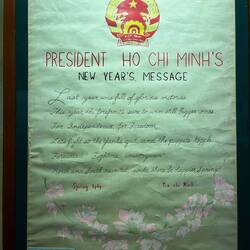 PRESIDENT HO CHI MINH'S
NEW YEAR'S MESSAGE
Last year was full of glorious victories
This year the forefronts sure to win still bigger ones
For Independence for Freedom
Let's fight so the Yanks quit and the puppets topple
Forward! Fighters, countrymen
North and South reunited, could there be happier Spring!
Spring 1969
Ho chi Minh